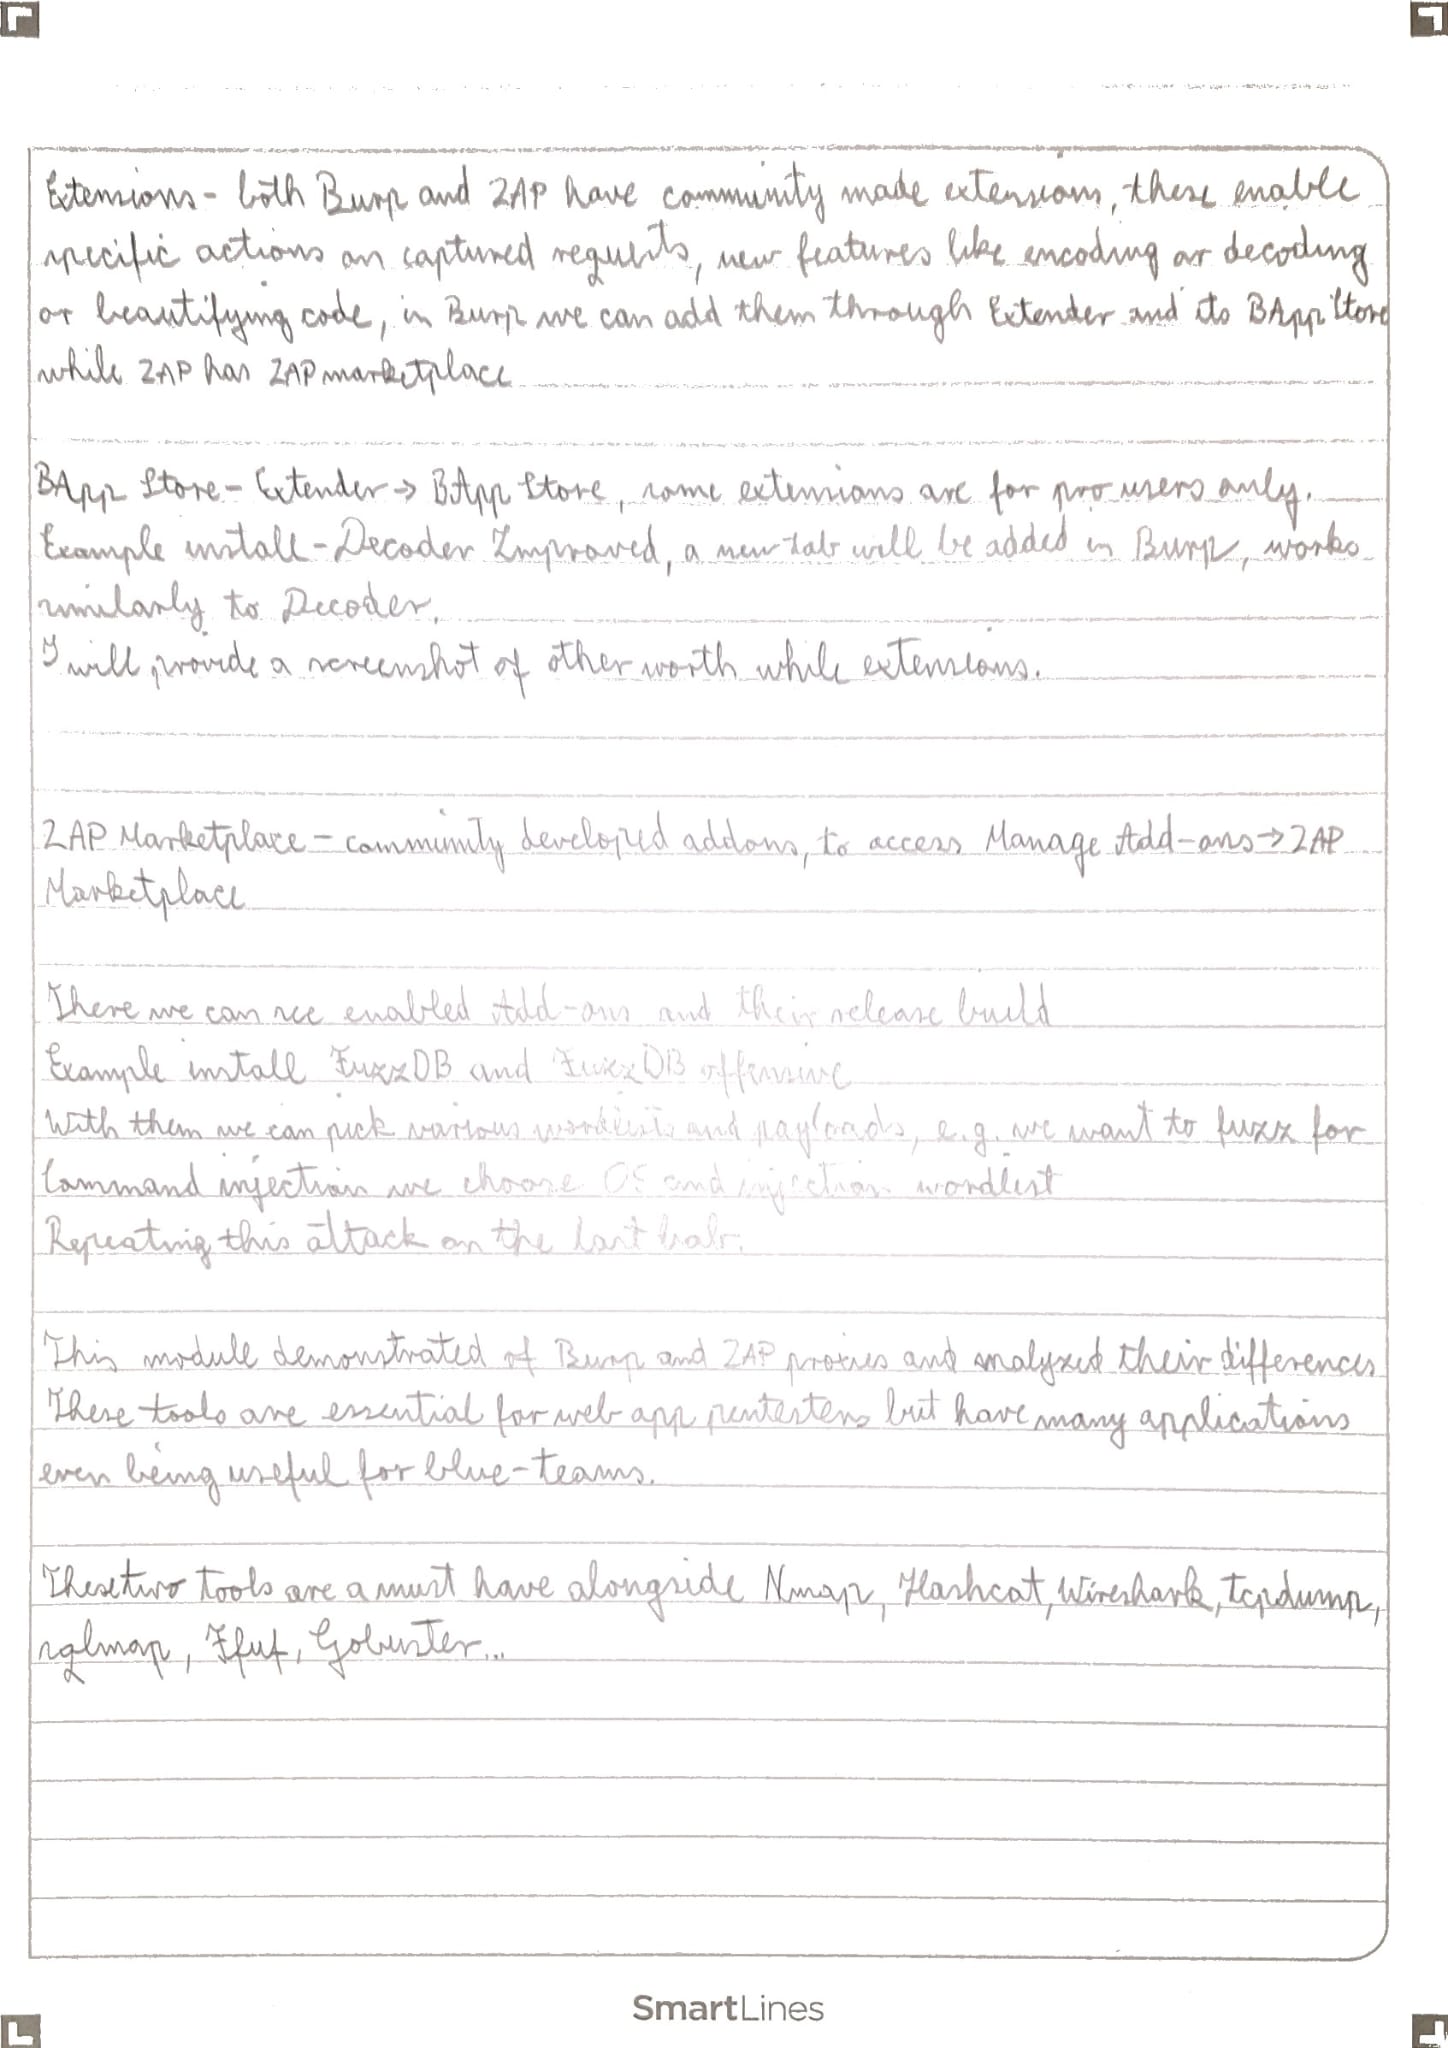 Extensions - both Burp and ZAP have community made extensions, these enable
specific actions on captured requests, new features like encoding or decoding
or beautifying code, in Burp we can add them through Extender and its BApp Store
while ZAP has ZAP marketplace
BApp Store - Extender → BApp Store, some extensions are for pro users only.
Example install - Decoder Improved, a new tab will be added in Burp, works
similarly to Decoder.
I will provide a screenshot of other worth while extensions.
ZAP Marketplace - community developed addons, to access Manage Add-ons → ZAP
Marketplace
There we can see enabled Add-ons and their release build
Example install FuzzDB and FuzzDB offensive
With them we can pick various wordlists and payloads, e.g. we want to fuzz for
Command injection we choose OS cmd injection wordlist
Repeating this attack on the last lab.
This module demonstrated of Burp and ZAP proxies and analyzed their differences
These tools are essential for web app pentesters but have many applications
even being useful for blue-teams.
These two tools are a must have alongside Nmap, Hashcat, Wireshark, tcpdump,
sqlmap, Ffuf, Gobuster...
SmartLines